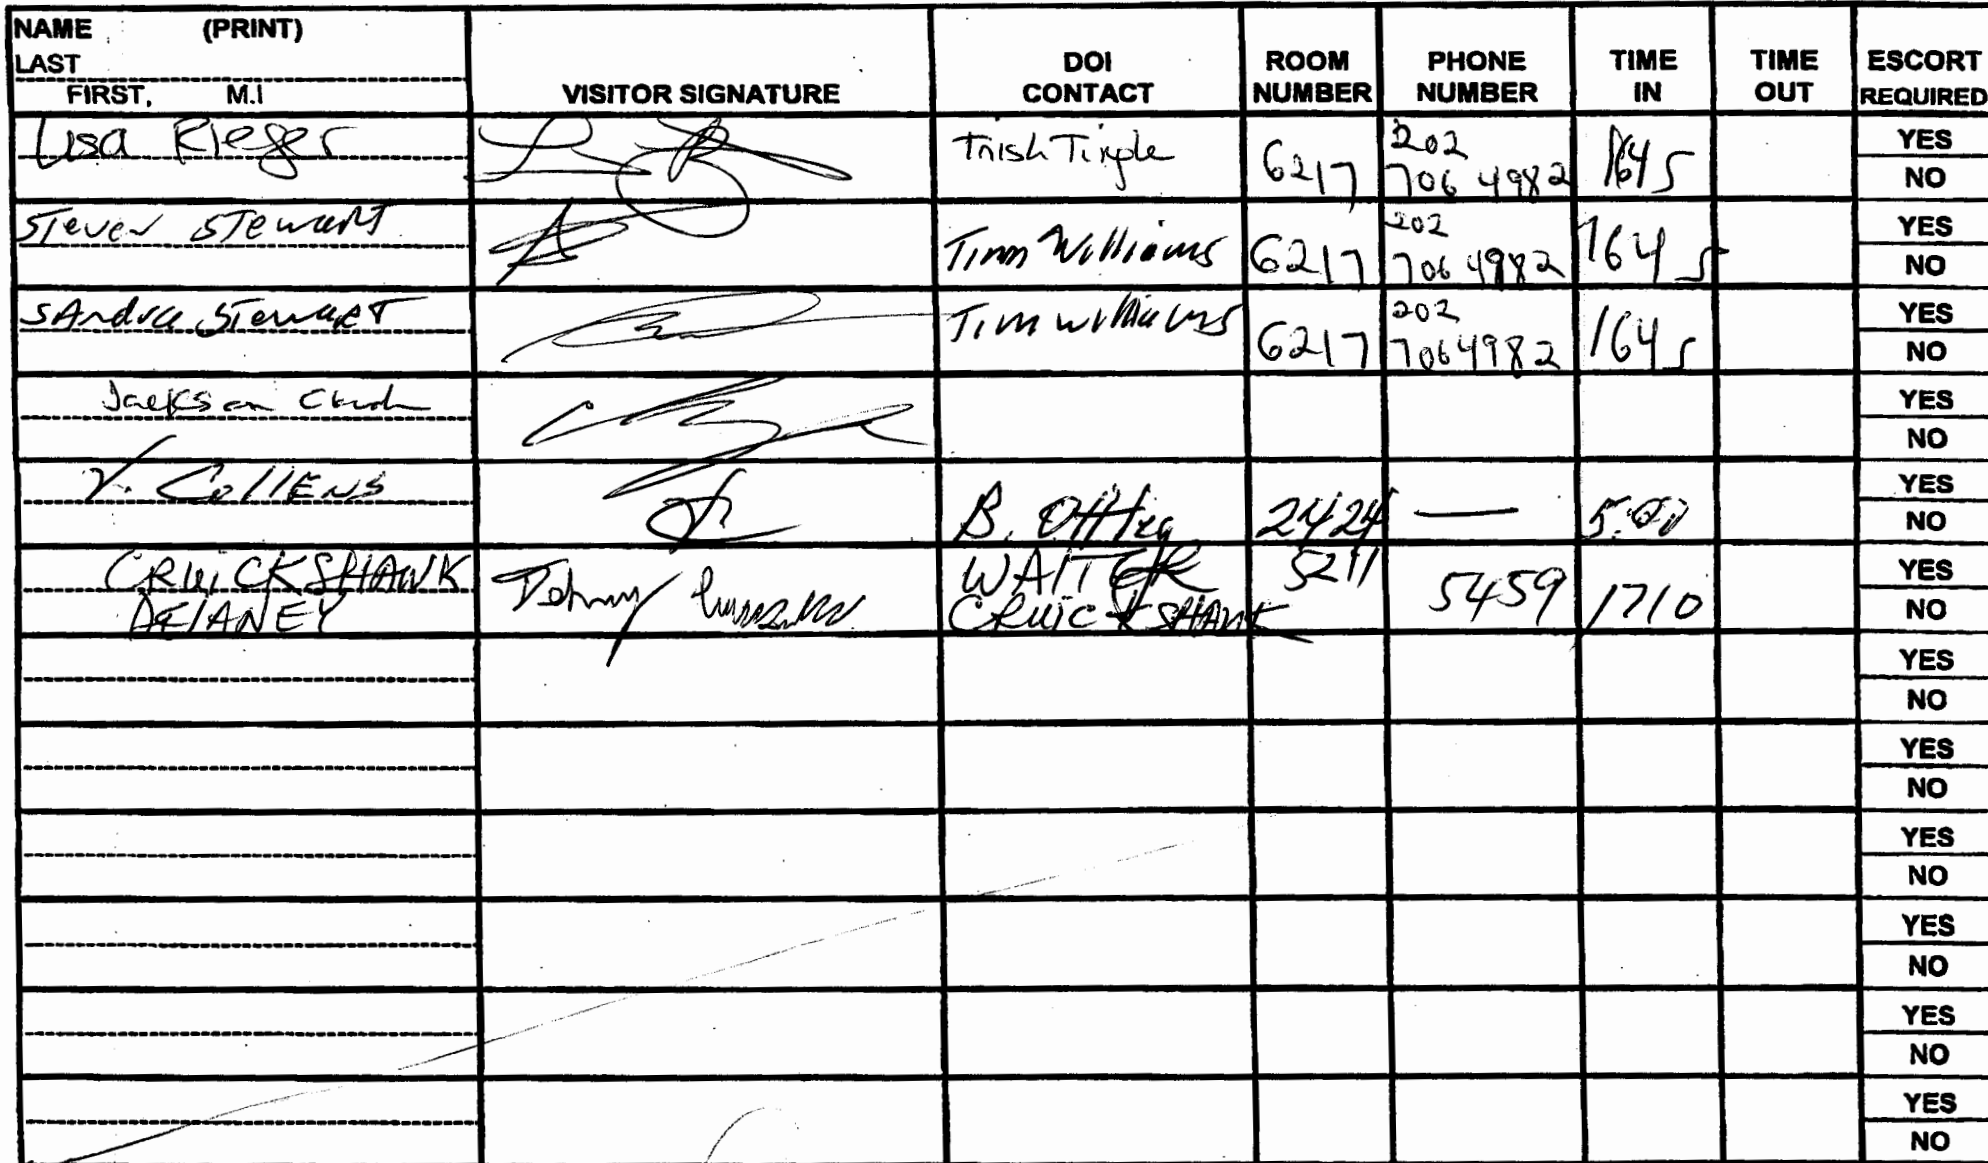 NAME (PRINT)
LAST
FIRST, M.I
VISITOR SIGNATURE
DOI CONTACT
ROOM NUMBER
PHONE NUMBER
TIME IN
TIME OUT
ESCORT REQUIRED
Lisa Rieger Trish Tingle 6217 202 706 4982 1645 YES NO
Steven Stewart Timm Williams 6217 202 706 4982 1645 YES NO
SAndra Stewart Tim williams 6217 202 706 4982 1645 YES NO
Jackson YES NO
V. CollENS B. 2424 — 5:00 YES NO
CRUICKSHANK WAITER 5211
DELANEY Johnny CRUICKSHANK 5459 1710 YES NO
YES
NO
YES
NO
YES
NO
YES
NO
YES
NO
YES
NO